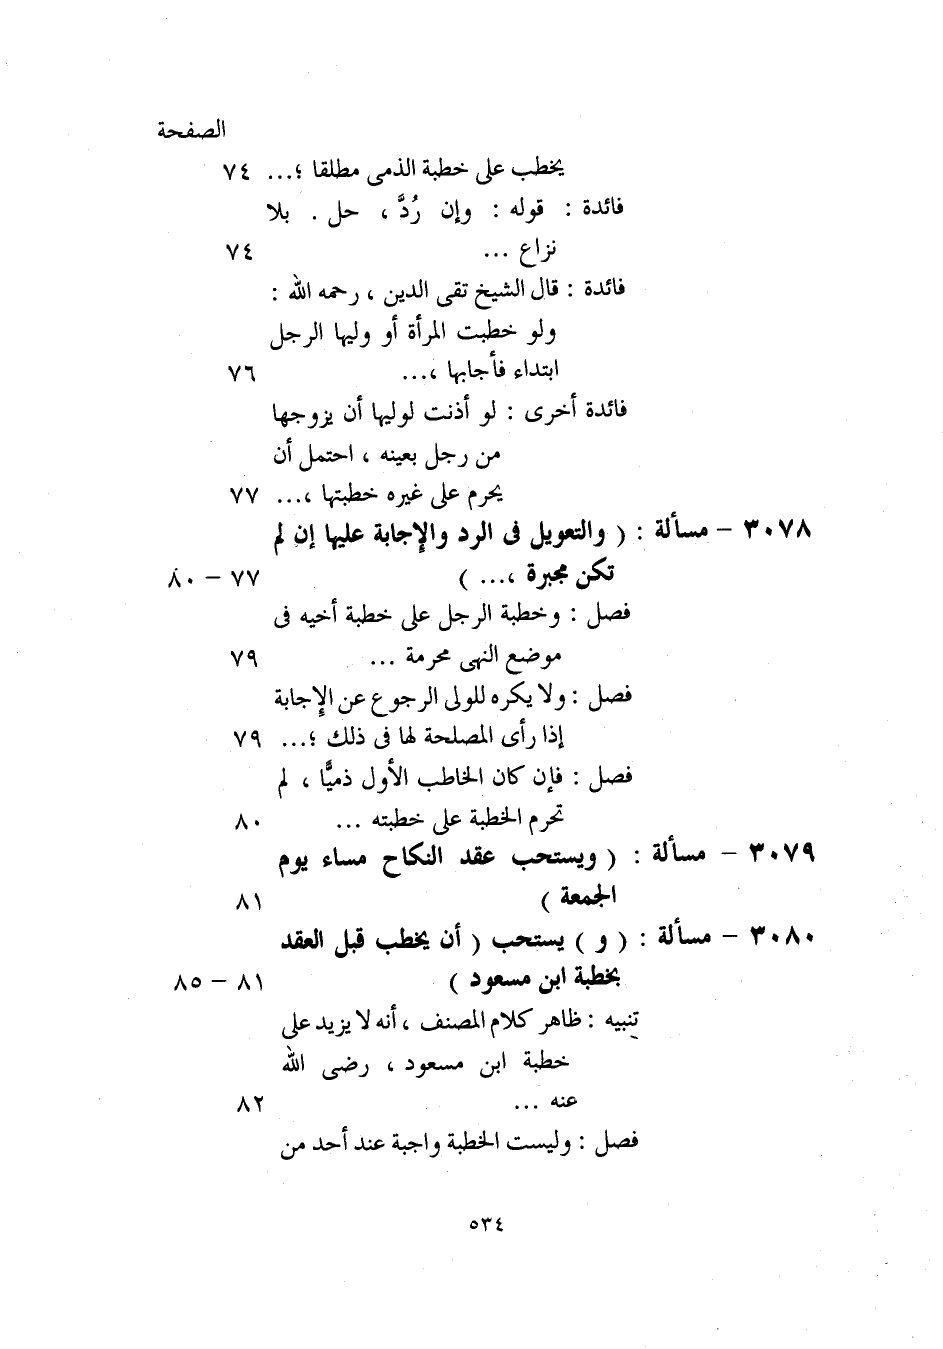 الصفحة
يخطب على خطبة الذمى مطلقا ؛... ٧٤
فائدة : قوله : وإن رُدَّ ، حل . بلا
نزاع ... ٧٤
فائدة : قال الشيخ تقى الدين ، رحمه الله :
ولو خطبت المرأة أو وليها الرجل
ابتداء فأجابها ،... ٧٦
فائدة أخرى : لو أذنت لوليها أن يزوجها
من رجل بعينه ، احتمل أن
يحرم على غيره خطبتها ،... ٧٧
٣٠٧٨ – مسألة : ( والتعويل فى الرد والإجابة عليها إن لم
تكن مجبرة ،... ) ٧٧ – ٨٠
فصل : وخطبة الرجل على خطبة أخيه فى
موضع النهى محرمة ... ٧٩
فصل : ولا يكره للولى الرجوع عن الإجابة
إذا رأى المصلحة لها فى ذلك ؛... ٧٩
فصل : فإن كان الخاطب الأول ذميًّا ، لم
تحرم الخطبة على خطبته ... ٨٠
٣٠٧٩ – مسألة : ( ويستحب عقد النكاح مساء يوم
الجمعة ) ٨١
٣٠٨٠ – مسألة : ( و ) يستحب ( أن يخطب قبل العقد
بخطبة ابن مسعود ) ٨١ – ٨٥
تنبيه : ظاهر كلام المصنف ، أنه لا يزيد على
خطبة ابن مسعود ، رضى الله
عنه ... ٨٢
فصل : وليست الخطبة واجبة عند أحد من
٥٣٤